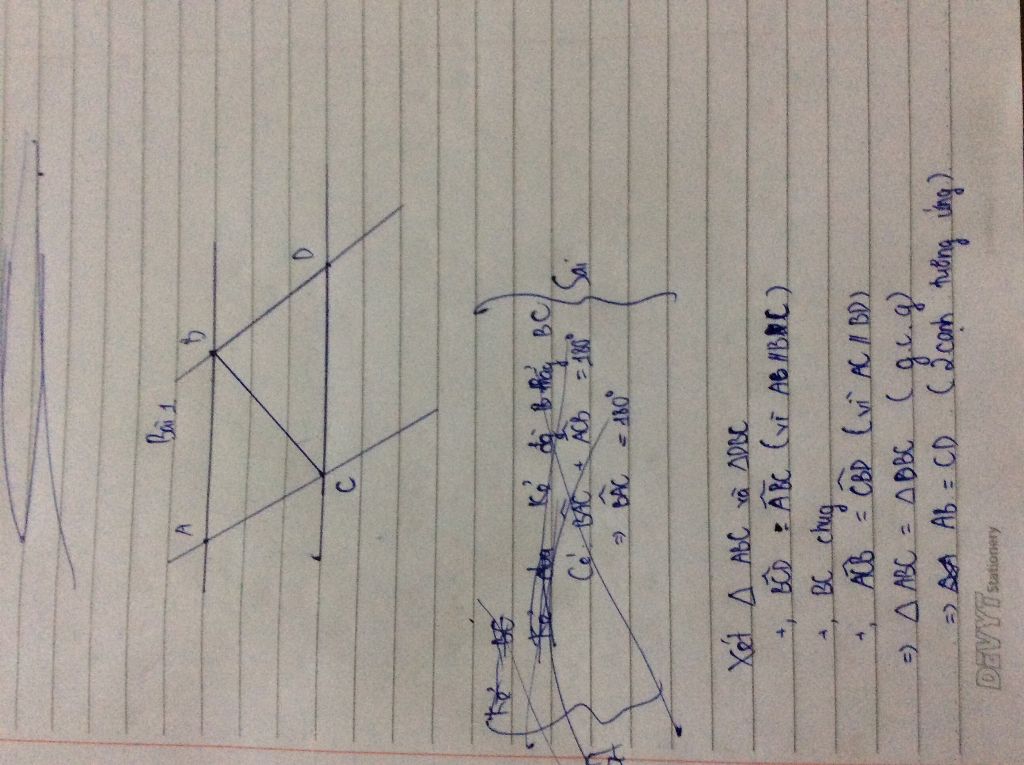 Bài 1
A B
C D
Kẻ AB
Kẻ đg Kẻ đg BC
Có BAC + ACB = 180°
⇒ BAC = 180°
Sai
Xét Δ ABC và ΔDBC
+, BCD = ABC (vì AB//BC)
+, BC chug
+, ACB = CBD (vì AC//BD)
⇒ Δ ABC = ΔDBC (g.c.g)
⇒ AB = CD (2 cạnh tương ứng)
DEVYT Stationery